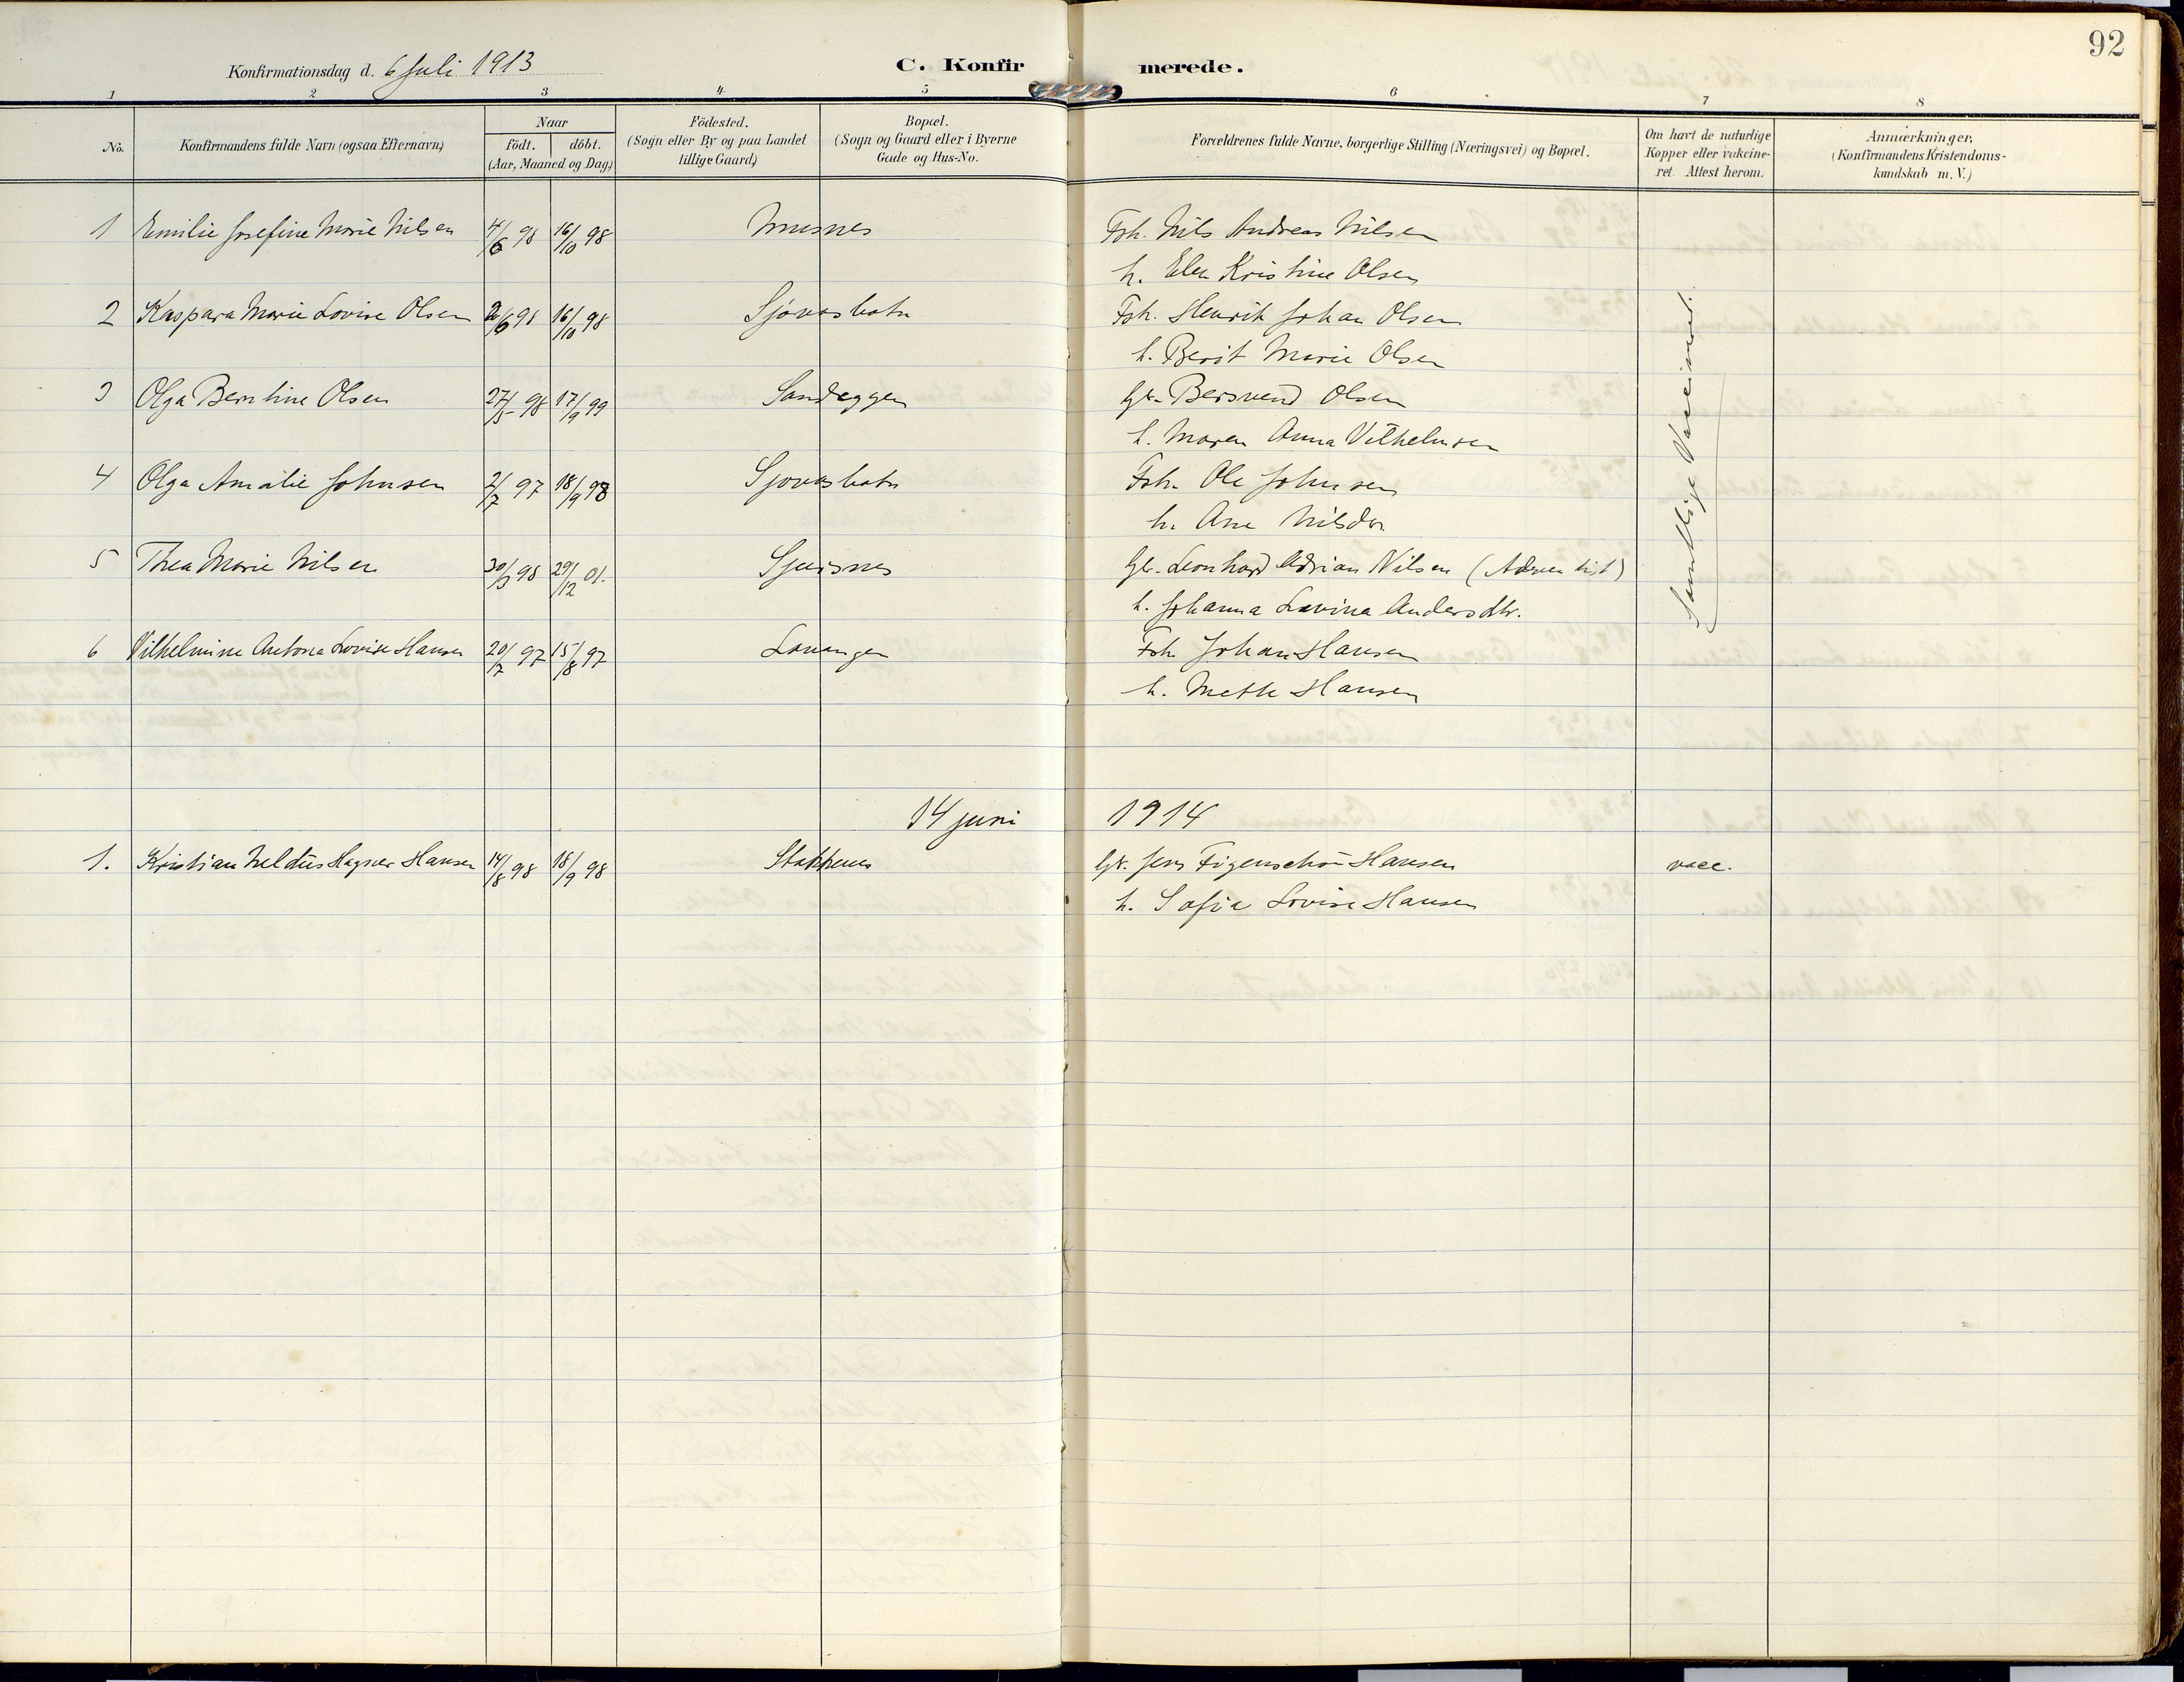 92
Konfirmationsdag d. 6 Juli 1913
C. Konfirmerede.
1 2 3 4 5 6 7 8
No.
Konfirmandens fulde Navn (ogsaa Efternavn)
Naar
födt. döbt.
(Aar, Maaned og Dag.)
Födested.
(Sogn eller By og paa Landet
tillige Gaard)
Bopæl.
(Sogn og Gaard eller i Byerne
Gade og Hus-No.
Forældrenes fulde Navne, borgerlige Stilling (Næringsvei) og Bopæl.
Om havt de naturlige
Kopper eller vakcine-
ret. Attest herom.
Anmærkninger,
(Konfirmandens Kristendoms-
kundskab m. V.)
1 Emilie Josefine Marie Nilsen 4/6 98 16/10 98 Fsk. Nils Andreas Nilsen
h. Elen Kristine Olsen
2 Kaspara Marie Lovise Olsen 98 16/10 98 Sjøvasbotn Fsk. Henrik Johan Olsen
h. Berit Marie Olsen
3 Olga Berntine Olsen 27/5 98 17/9 99 Sandeggen Gbr. Bersvend Olsen
h. Maren Anna Vilhelmsen
4 Olga Amalie Johnsen 2/7 97 18/9 98 Sjovasbotn Fsk. Ole Johnsen
h. Ane Nilsdr.
5 Thea Marie Nilsen 30/3 98 29/12 01. Sjursnes Gbr. Leonhard Adrian Nilsen (Adventist)
h. Johanna Lovina Andersdtr.
6 Vilhelmine Antona Lovise Hansen 20/7 97 15/8 97 Lavangen Fsk Johan Hansen
h. Mette Hansen
Samtlige Vaccineret.
14 juni 1914
1. Kristian Meldus Hagner Hansen 14/8 98 18/9 98 Stakkenes Gbr. Jens Figenschou Hansen vacc.
h. Sofie Lovise Hansen